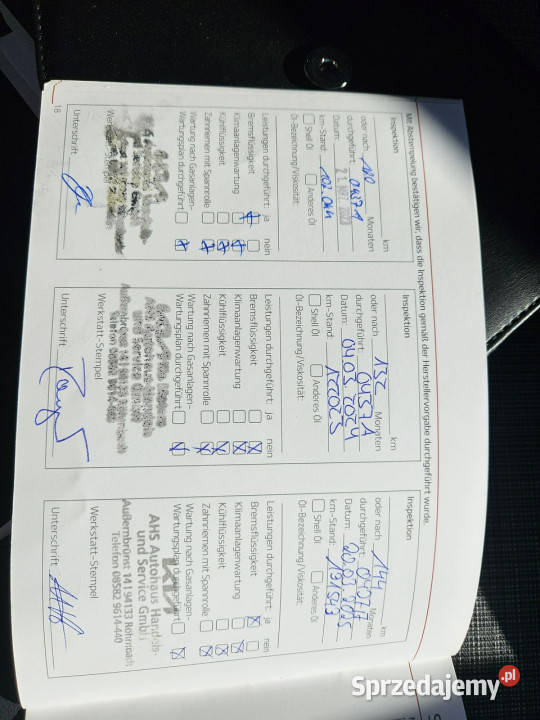 Mit Abstempelung bestätigen wir, dass die Inspektion gemäß der Herstellervorgabe durchgeführt wurde.
Inspektion
km
oder nach 120 Monaten
durchgeführt: 04371
Datum:
km-Stand: 102.044
Shell Öl Anderes Öl
Öl-Bezeichnung/Viskosität:
Leistungen durchgeführt: ja nein
Bremsflüssigkeit
Klimaanlagenwartung
Kühlflüssigkeit
Zahnriemen mit Spannrolle
Wartung nach Gasanlagen-
Wartungsplan durchgeführt
Unterschrift
18
Inspektion
km
oder nach 132 Monaten
durchgeführt: 04371
Datum: 04.03.2024
km-Stand:
Shell Öl Anderes Öl
Öl-Bezeichnung/Viskosität:
Leistungen durchgeführt: ja nein
Bremsflüssigkeit
Klimaanlagenwartung
Kühlflüssigkeit
Zahnriemen mit Spannrolle
Wartung nach Gasanlagen-
Wartungsplan durchgeführt
AHS Autohaus Handels-
und Service GmbH
Außernbrünst 14 | 94133 Röhrnbach
Telefon 08582 9614-440
Werkstatt-Stempel
Unterschrift
Inspektion
km
oder nach 144 Monaten
durchgeführt:
Datum:
km-Stand: 131543
Shell Öl Anderes Öl
Öl-Bezeichnung/Viskosität:
Leistungen durchgeführt: ja nein
Bremsflüssigkeit
Klimaanlagenwartung
Kühlflüssigkeit
Zahnriemen mit Spannrolle
Wartung nach Gasanlagen-
Wartungsplan durchgeführt
KIA
AHS Autohaus Handels-
und Service GmbH
Außernbrünst 14 | 94133 Röhrnbach
Telefon 08582 9614-440
Werkstatt-Stempel
Unterschrift
Sprzedajemy.pl